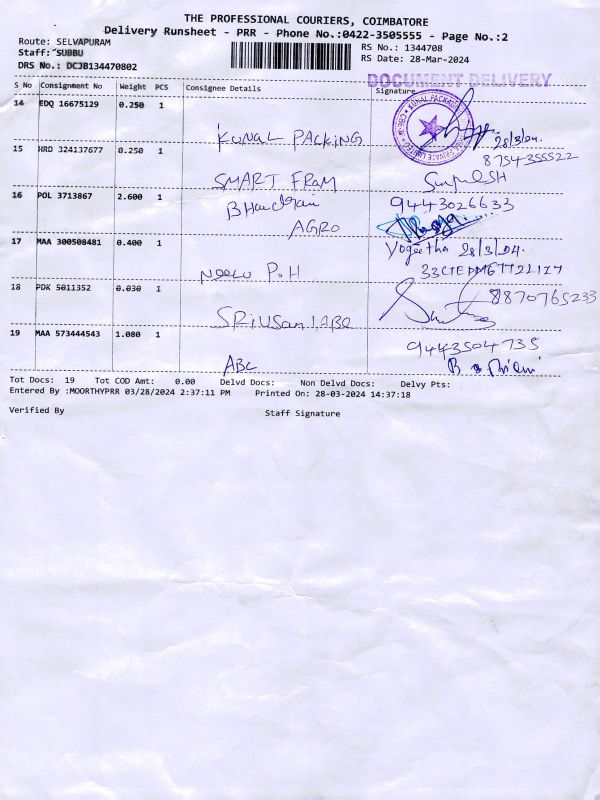 THE PROFESSIONAL COURIERS, COIMBATORE
Delivery Runsheet - PRR - Phone No.:0422-3505555 - Page No.:2
Route: SELVAPURAM
Staff: SUBBU
DRS No.: DCJB134470802
RS No.: 1344708
RS Date: 28-Mar-2024
DOCUMENT DELIVERY
S No Consignment No Weight PCS Consignee Details Signature
14 EDQ 16675129 0.250 1
KUNAL PACKING
28/3/24.
15 HRD 324137677 0.250 1
8754355522
SMART FRAM
16 POL 3713867 2.600 1
9443026633
AGRO
17 MAA 300508481 0.400 1
Yogeetha 28/3/24.
NEERU P.H
18 PDK 5011352 0.030 1
8870765233
19 MAA 573444543 1.080 1
9443504735
ABC
Tot Docs: 19 Tot COD Amt: 0.00 Delvd Docs: Non Delvd Docs: Delvy Pts:
Entered By :MOORTHYPRR 03/28/2024 2:37:11 PM Printed On: 28-03-2024 14:37:18
Verified By Staff Signature